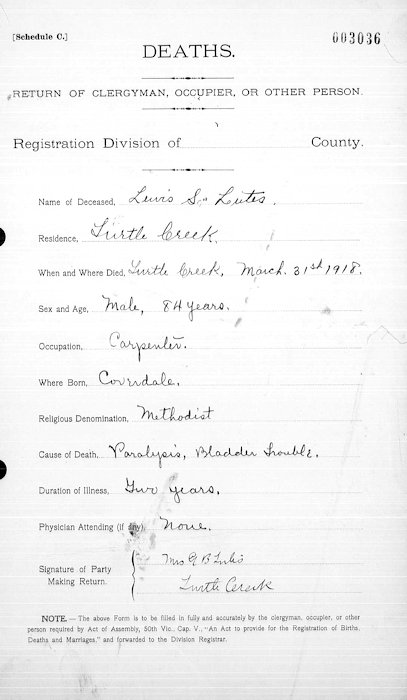 [Schedule C.]
003036
DEATHS.
RETURN OF CLERGYMAN, OCCUPIER, OR OTHER PERSON.
Registration Division of County.
Name of Deceased, Lewis S. Lutes.
Residence, Turtle Creek.
When and Where Died, Turtle Creek, March. 31st 1918.
Sex and Age, Male, 84 years.
Occupation, Carpenter.
Where Born, Coverdale.
Religious Denomination, Methodist
Cause of Death, Paralysis, Bladder Trouble.
Duration of Illness, Two years.
Physician Attending (if any), None.
Signature of Party
Making Return.
Mrs B Lutes
Turtle Creek
NOTE. — The above Form is to be filled in fully and accurately by the clergyman, occupier, or other
person required by Act of Assembly, 50th Vic., Cap. V., "An Act to provide for the Registration of Births,
Deaths and Marriages," and forwarded to the Division Registrar.